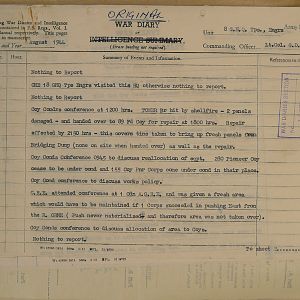 ORIGINAL
WAR DIARY
OF
INTELLIGENCE SUMMARY.
(Erase heading not required).
ing War Diaries and Intelligence
contained in F.S. Regs., Vol. I.
in manuscript.
and Year August 1944
Unit 8 G.H.Q. Tps. Engrs
Commanding Officer Lt.Col.
Summary of Events and Information.
References to
Nothing to Report
CRE 18 GHQ Tps Engrs visited this HQ otherwise nothing to report.
Nothing to Report
Coy Comds conference at 1200 hrs. TOWER Br hit by shellfire - 2 panels
damaged - and handed over to 89 Fd Coy for repair at 1800 hrs. Repair
effected by 2150 hrs - this covers time taken to bring up fresh panels
Bridging Dump (none on site when handed over) as well as the repair.
Coy Comds Conference 0945 to discuss reallocation of eqpt. 280 Pioneer Coy
cease to be under comd and 144 Coy Pnr Corps come under comd in their place.
Coy Comd conference to discuss works policy.
C.R.E. attended conference at 1 Corps and was given a fresh area
which would have to be maintained if 1 Corps succeeded in pushing East from
the R. ORNE ( Push never materialised and therefore area was not taken over).
Coy Comds conference to discuss allocation of area to Coys.
Nothing to report.
To sheet